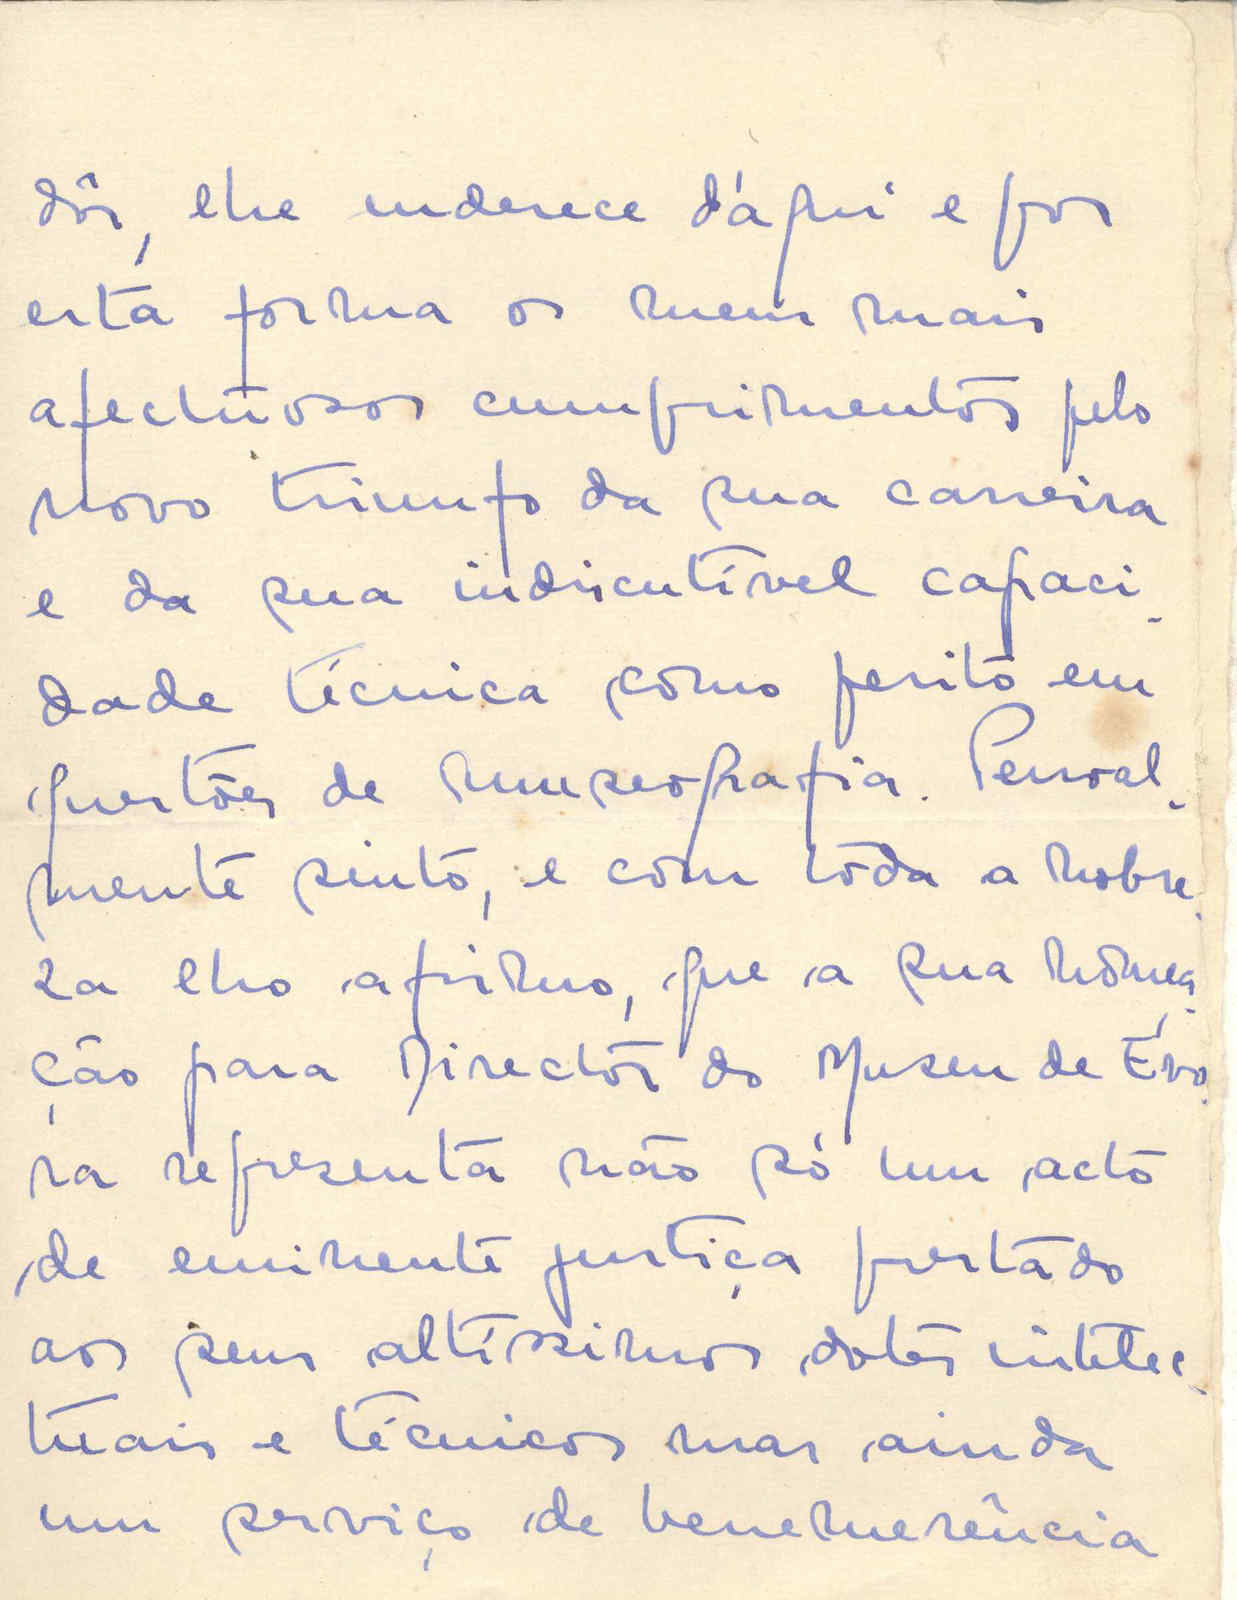 dôr, lhe enderece d'áqui e por
esta forma os meus mais
afectuosos cumprimentos pelo
novo triunfo da sua carreira
e da sua indiscutível capaci-
dade técnica como perito em
questões de museografia. Pessoal-
mente sinto, e com tôda a nobre-
za lho afirmo, que a sua nomea-
ção para Director do Museu de Évo-
ra representa não só um acto
de eminente justiça prestado
aos seus altíssimos dotes intelec-
tuais e técnicos mas ainda
um serviço de benemerência